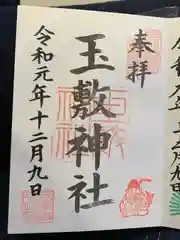 奉拝
玉敷神社
令和元年十二月九日